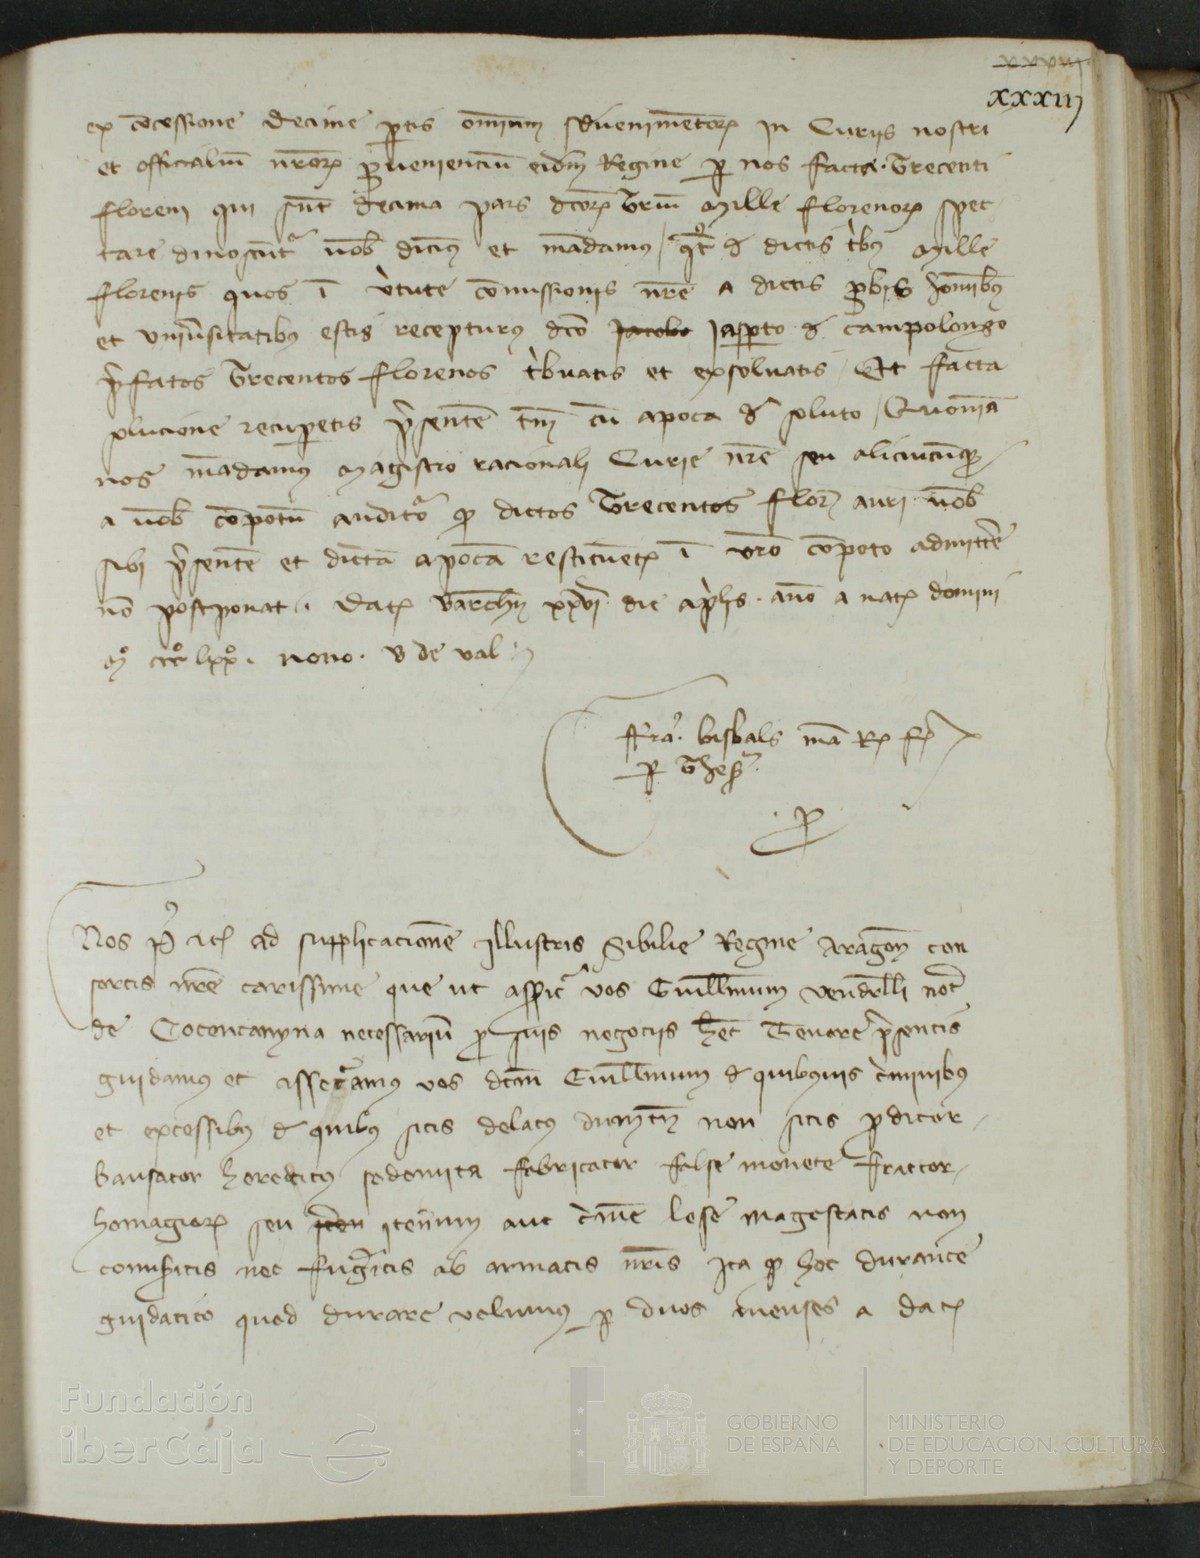 xxxiij
xxxiij
ex concessione decime partis omnium Eduenimentorum in Curiis nostri
et officialium nrorum proueniencium eidem Regine per nos facta. Trecenti
floreni qui sunt decima pars dictorum Trium Mille florenorum spec
tare dinoscuntur uob dicimus et mandamus / quatenus de dictis tribus Mille
florenis quos in virtute comissionis nre a dictis probis hominibus
et vniuersitatibus estis recepturus dco Jacobo Jasperto de campolongo
prefatos Trecentos florenos tribuatis et exsoluatis / Et facta
solucione recuperetis presentem tm cum apoca de soluto / Quoniam
nos mandamus Magistro racionali Curie nre seu alicuicumque
a uob compotum auditor quod dictos Trecentos flor auri uob
sibi presentem et dictam apocam restituentem in vro compoto admittere
non postponat. Dat Barchn xxvi die aprilis. anno a nat domini
Mo ccco lxxo. nono. B de val
ffra. bisbals ma Re fe
per Thes
p
Nos P etc ad supplicacionem Illustris Sibilie Regine Aragon con
sortis nre carissime que ut asseritur vos Guillmum vendrelli not
de Cocentaynna necessarium pro suis negociis het Tenore presentis
guidamus et assecuramus vos dcm Guillmum de quibusuis criminibus
et excessibus de quibus sitis delatus dumtm non sitis proditor
bausator hereticus sodomita fabricator false monete fractor
homagiorum seu iten itinerum aut crimen lese magestatis non
comiseritis nec fugeritis ab armatis nris Ita quod hoc durante
guidatico quod durare volumus per duos menses a dat
Fundación
iberCaja
GOBIERNO
DE ESPAÑA
MINISTERIO
DE EDUCACIÓN, CULTURA
Y DEPORTE